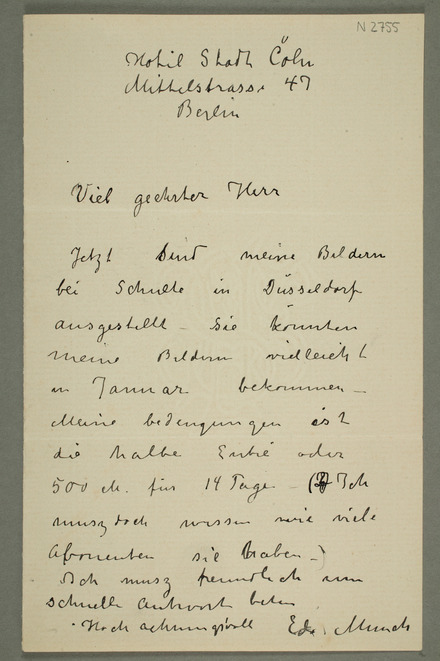 N 2755
Hotel Stadt Cöln
Mittelstrasse 47
Berlin
Viel geehrter Herr
Jetzt sind meine Bildern
bei Schulte in Düsseldorf
ausgestellt – Sie könnten
meine Bildern vielleicht
in Januar bekommen –
Meine bedengungen ist
die halbe Entré oder
500 M. für 14 Tage – ( Ich
musz doch wissen wie viele
Abonenten sie haben –)
Ich musz freundlich um
schnelle Antwort beten
Hoch achtungsvoll Edv. Munch